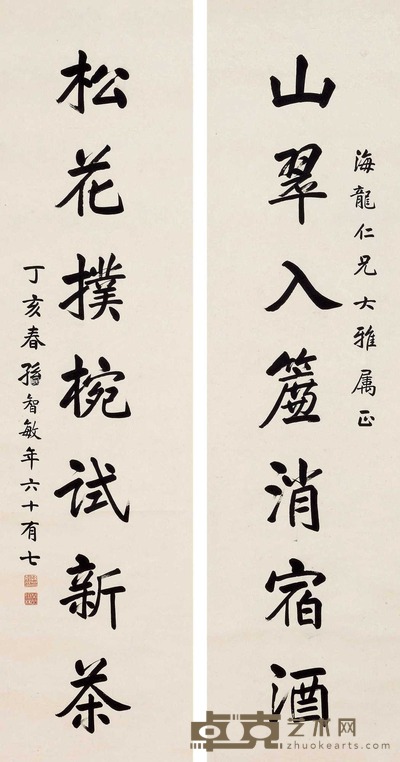 海龍仁兄大雅属正
山翠入簾消宿酒
松花撲椀試新茶
丁亥春孫智敏年六十有七
卓克艺术网
zhuokearts.com